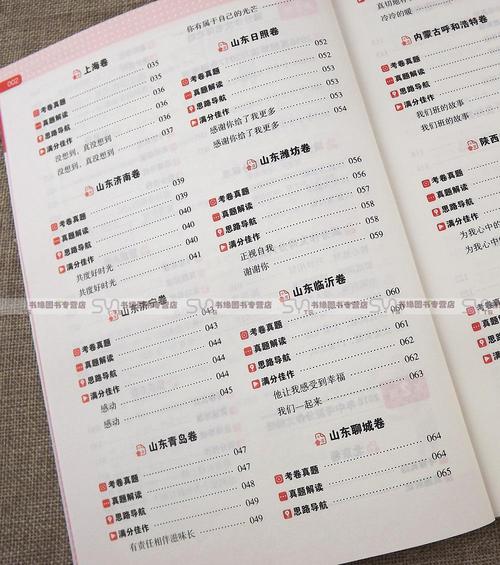 002
上海卷
考卷真题 035
真题解读 035
思路导航 036
满分佳作 036
没想到，真没想到 036
没想到，真没想到 037
山东济南卷
考卷真题 039
真题解读 039
思路导航 040
满分佳作 040
共度好时光 040
共度好时光 041
山东济宁卷
考卷真题 043
真题解读 043
思路导航 044
满分佳作 044
感动 044
感动 045
山东青岛卷
考卷真题 047
真题解读 047
思路导航 048
满分佳作 049
有责任相伴滋味长 049
你有属于自己的光芒
山东日照卷
考卷真题 052
真题解读 052
思路导航 053
满分佳作 053
感谢你给了我更多 053
感谢你给了我更多 054
山东潍坊卷
考卷真题 056
真题解读 056
思路导航 057
满分佳作 058
正视自我 058
谢谢你 059
山东临沂卷
考卷真题 060
真题解读 060
思路导航 061
满分佳作 062
他让我感受到幸福 062
我们一起来 063
山东聊城卷
考卷真题 064
真题解读 064
思路导航 065
冷冷的暖
内蒙古呼和浩特卷
考卷真题
真题解读
思路导航
满分佳作
我们班的故事
我们班的故事
陕西
考卷真题
真题解读
思路导航
满分佳作
为我心中的
为我心中
书缘图书专营店